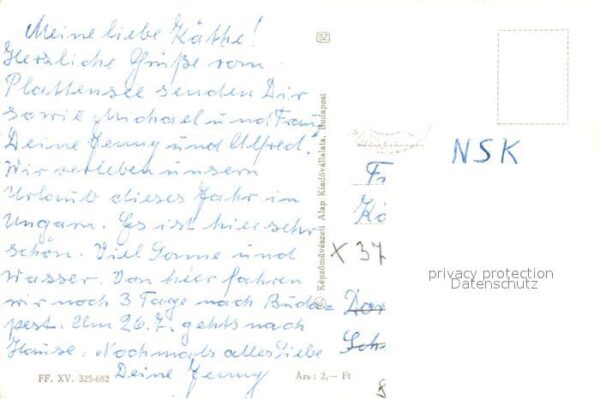 Meine liebe Käthe!
Herzliche Grüße vom
Plattensee senden Dir
sowie Michael und Frau
Deine Jenny und Alfred.
Wir verleben unsern
Urlaub dieses Jahr in
Ungarn. Es ist hier sehr
schön. Viel Sonne und
Wasser. Von hier fahren
wir noch 3 Tage nach Buda=
pest. Am 26.7. gehts nach
Hause. Nochmals alles Liebe
Deine Jenny
FF. XV. 325-682
Ára: 2,— Ft
Képzőművészeti Alap Kiadóvállalata, Budapest
NSK
Fr
Kä
X 37
privacy protection
Datenschutz